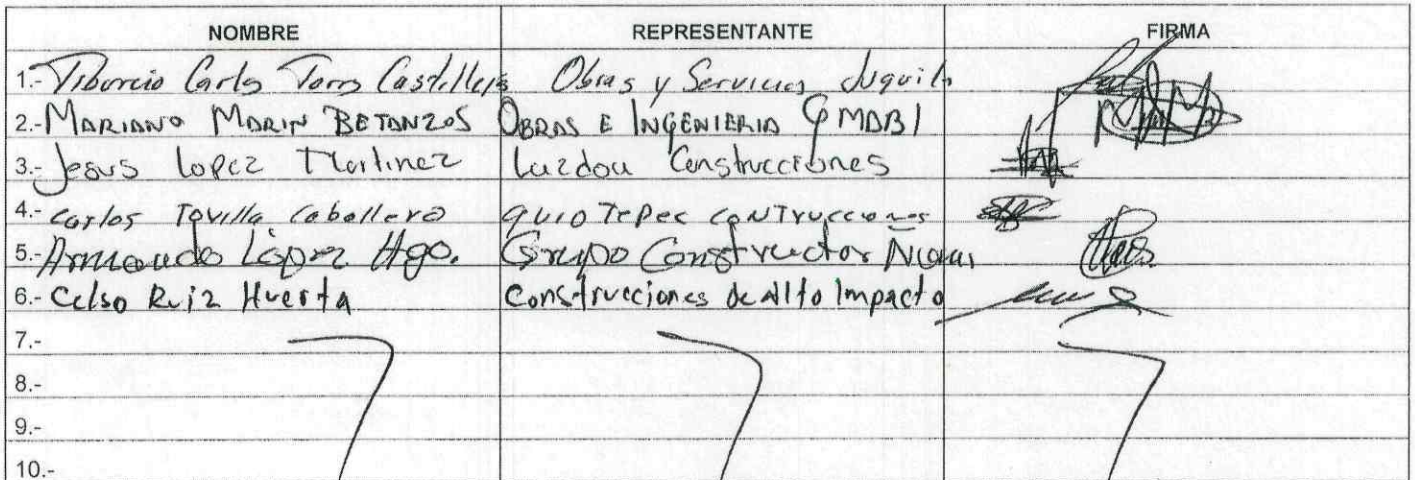 NOMBRE REPRESENTANTE FIRMA
1.- Tiburcio Carlos Torres Castillejos Obras y Servicios Juquila
2.- MARIANO MARIN BETANZOS OBRAS E INGENIERIA GMABI
3.- Jesus Lopez Martinez Luzdou Construcciones
4.- Carlos Tovilla Caballero QUIOTEPEC CONTRUCCIONES
5.- Armando López Hgo. Grupo Constructor
6.- Celso Ruiz Huerta Construcciones de Alto Impacto
7.-
8.-
9.-
10.-